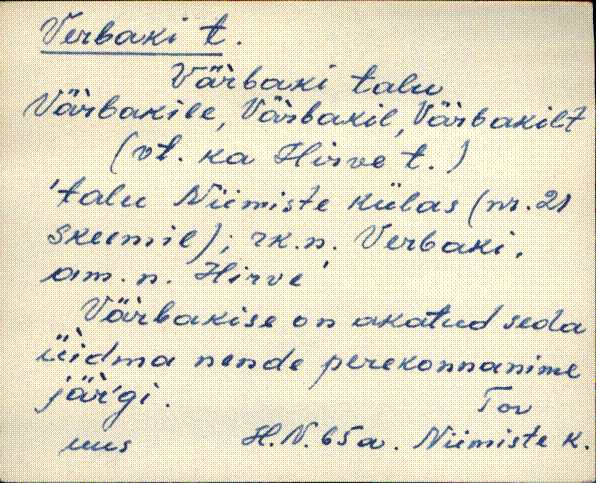 Verbaki t.
Vä̀rbaki talu
Vä̀rbakile, Vä̀rbakil, Vä̀rbakilt
(vt. ka Hirve t.)
'talu Niimiste külas (nr. 21
skeemil); rk. n. Verbaki,
am. n. Hirve'
Vä̀rbakise on akatud seda
üìdma nende perekonnanime
jär̀gi.
Tov
uus H. N. 65 a. Niimiste k.